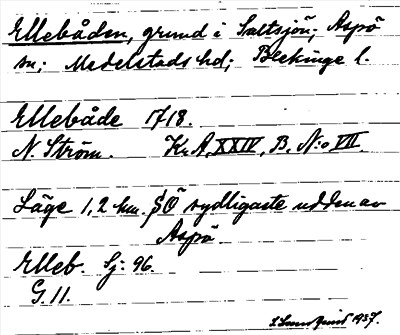 Ellebåden, grund i Saltsjön; Aspö
sn; Medelstads hd; Blekinge l.
Ellebåde 1718.
N. Ström. Kr. A, XXIV, B. N:o VII.
Läge 1,2 km. SÖ sydligaste udden av
Aspö
Elleb. Sj: 96.
G. 11.
1937.